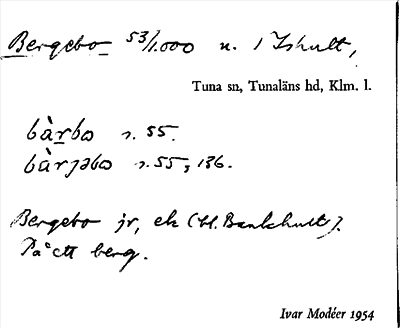 Bergebo 53/1.000 u. i Ishult,
Tuna sn, Tunaläns hd, Klm. l.
bàrbo s. 55.
bàrjəbo s. 55, 136.
Bergebo jr, ek (bl. Bankhult).
På ett berg.
Ivar Modéer 1954